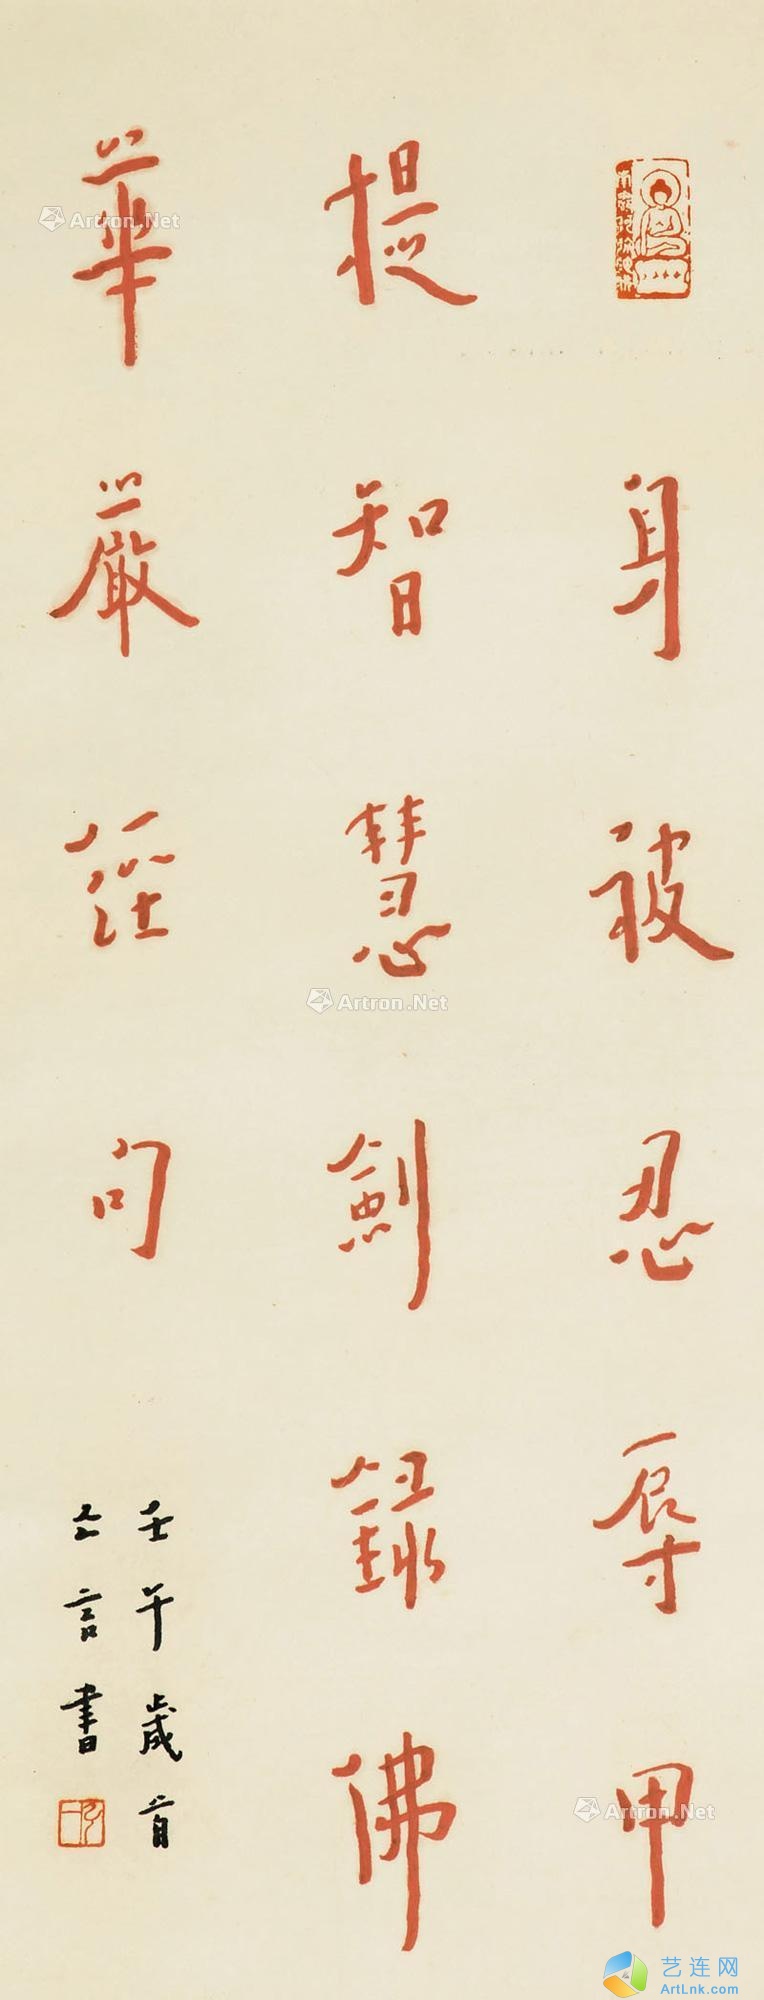 身被忍辱甲
提智慧劍錄佛
華嚴經句
壬午歲首
亡言書
Artron.Net
Artron.Net
Artron.Net
艺连网
ArtLnk.com